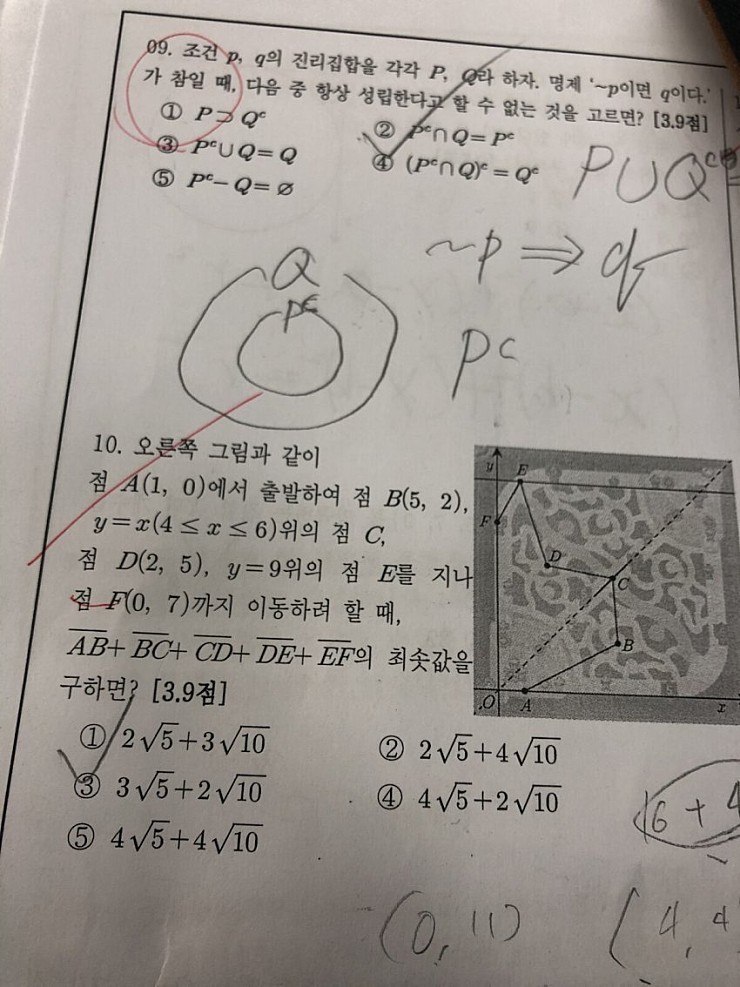 09. 조건 p, q의 진리집합을 각각 P, Q라 하자. 명제 '~p이면 q이다.'
가 참일 때, 다음 중 항상 성립한다고 할 수 없는 것을 고르면? [3.9점]
① P⊃Qᶜ
② Pᶜ∩Q=Pᶜ
③ Pᶜ∪Q=Q
④ (Pᶜ∩Q)ᶜ=Qᶜ
⑤ Pᶜ-Q=∅
P∪Qᶜ
~p ⇒ q
Q
Pᶜ
Pᶜ
10. 오른쪽 그림과 같이
점 A(1, 0)에서 출발하여 점 B(5, 2),
y=x(4≤x≤6)위의 점 C,
점 D(2, 5), y=9위의 점 E를 지나
점 F(0, 7)까지 이동하려 할 때,
AB+BC+CD+DE+EF의 최솟값을
구하면? [3.9점]
y
E
F
D
C
B
O
A
x
① 2√5+3√10
② 2√5+4√10
③ 3√5+2√10
④ 4√5+2√10
⑤ 4√5+4√10
16+4
(0, 11)
(4, 4